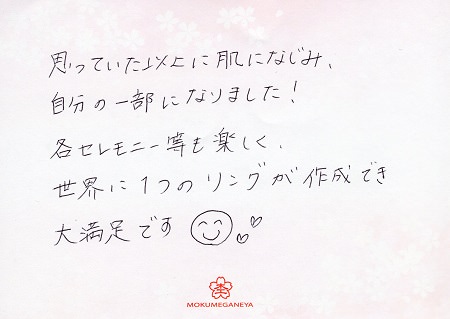 思っていた以上に肌になじみ、
自分の一部になりました！
各セレモニー等も楽しく、
世界に1つのリングが作成でき
大満足です
MOKUMEGANEYA